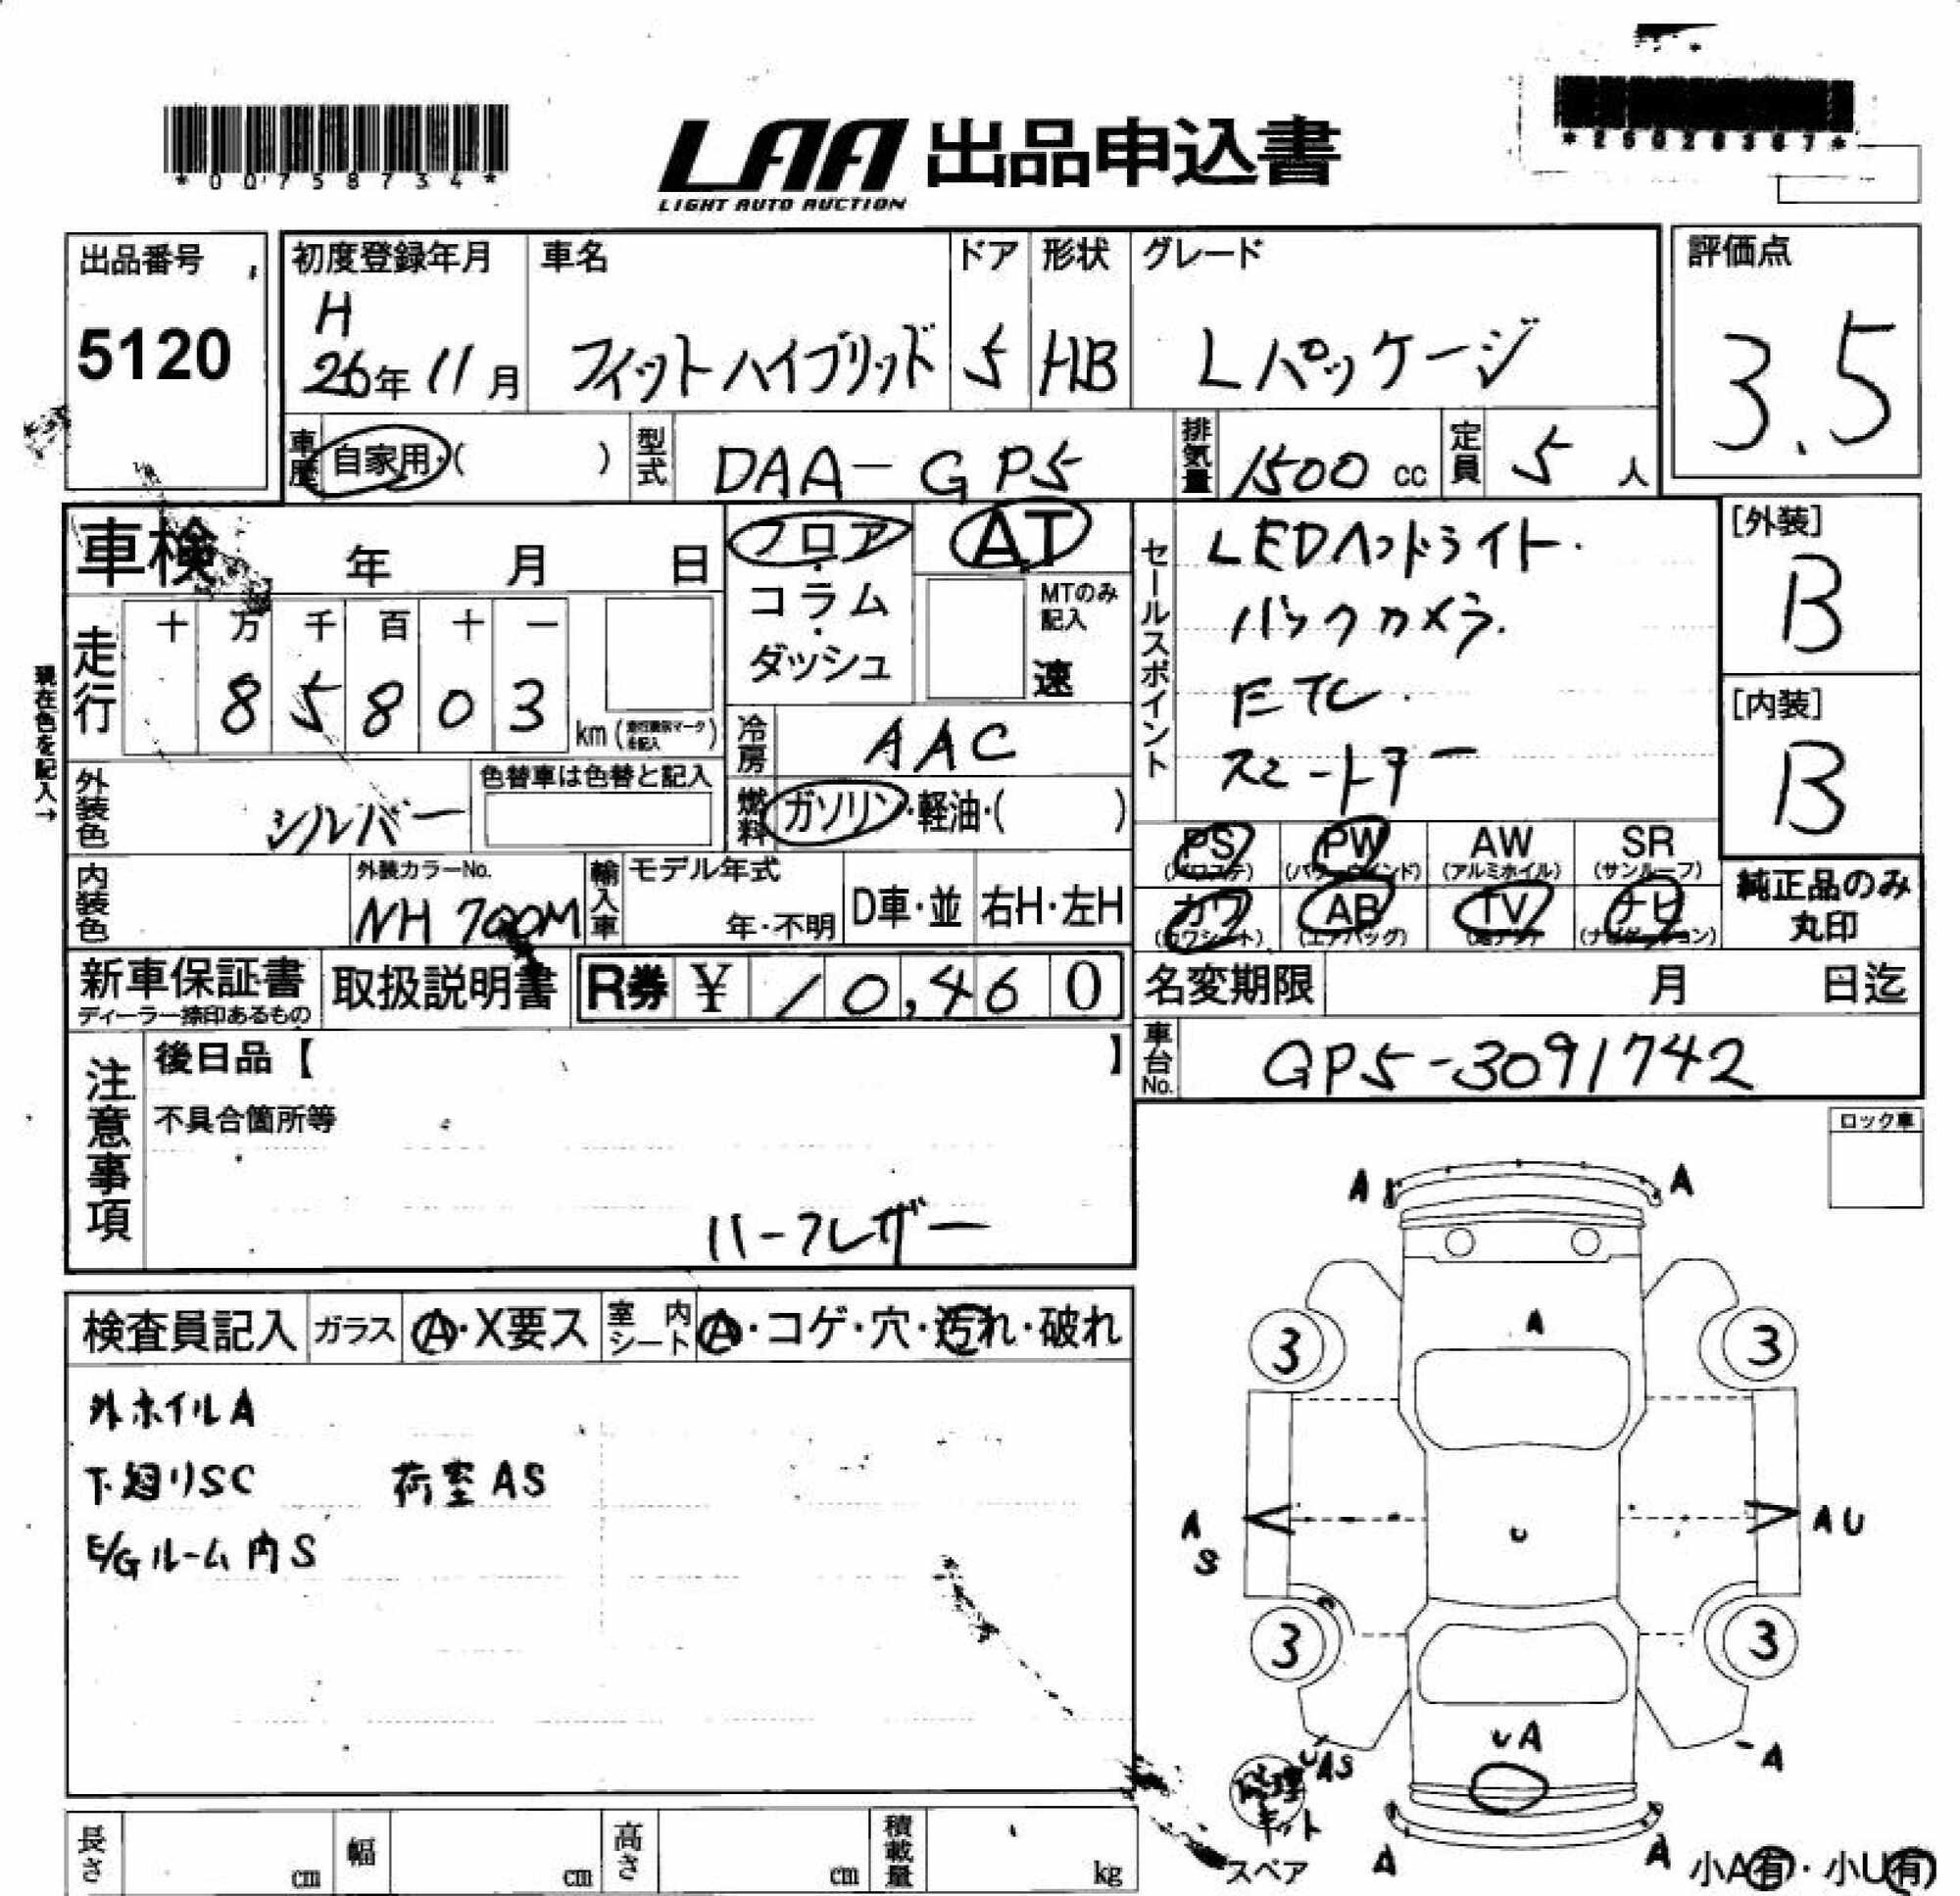 *00758734*
LAA 出品申込書
LIGHT AUTO AUCTION
*26028367*
出品番号
5120
初度登録年月
H
26年11月
車名
フィットハイブリッド
ドア
5
形状
HB
グレード
Lパッケージ
評価点
3.5
車歴 自家用・( )
型式 DAA-GP5
排気量 1500cc
定員 5人
車検 年 月 日
フロア・コラム・ダッシュ
AT
MTのみ記入
速
走行 十 万 千 百 十 一
8 5 8 0 3 km
現在色を記入→
冷房 AAC
燃料 ガソリン・軽油・( )
セールスポイント
LEDヘッドライト.
バックカメラ.
ETC.
スマートキー
[外装]
B
[内装]
B
外装色 シルバー
色替車は色替と記入
内装色
外装カラーNo.
NH 700M
輸入車
モデル年式
年・不明
D車・並
右H・左H
PS (パワステ)
PW (パワーウインド)
AW (アルミホイル)
SR (サンルーフ)
カワ (カワシート)
AB (エアバッグ)
TV
ナビ (ナビゲーション)
純正品のみ
丸印
新車保証書
ディーラー捺印あるもの
取扱説明書
R券 ¥ 10,460
名変期限 月 日迄
車台No. GP5-3091742
注意事項
後日品【 】
不具合箇所等
ハーフレザー
ロック車
検査員記入
ガラス A・X要ス
室内シート A・コゲ・穴・汚れ・破れ
外ホイルA
下廻りSC 荷室AS
E/Gルーム内S
A A
A
3 3
A
S
U
AU
3 3
UA
UAS
A
修理
キット
スペア
A A
小A有・小U有
長さ cm
幅 cm
高さ cm
積載量 kg